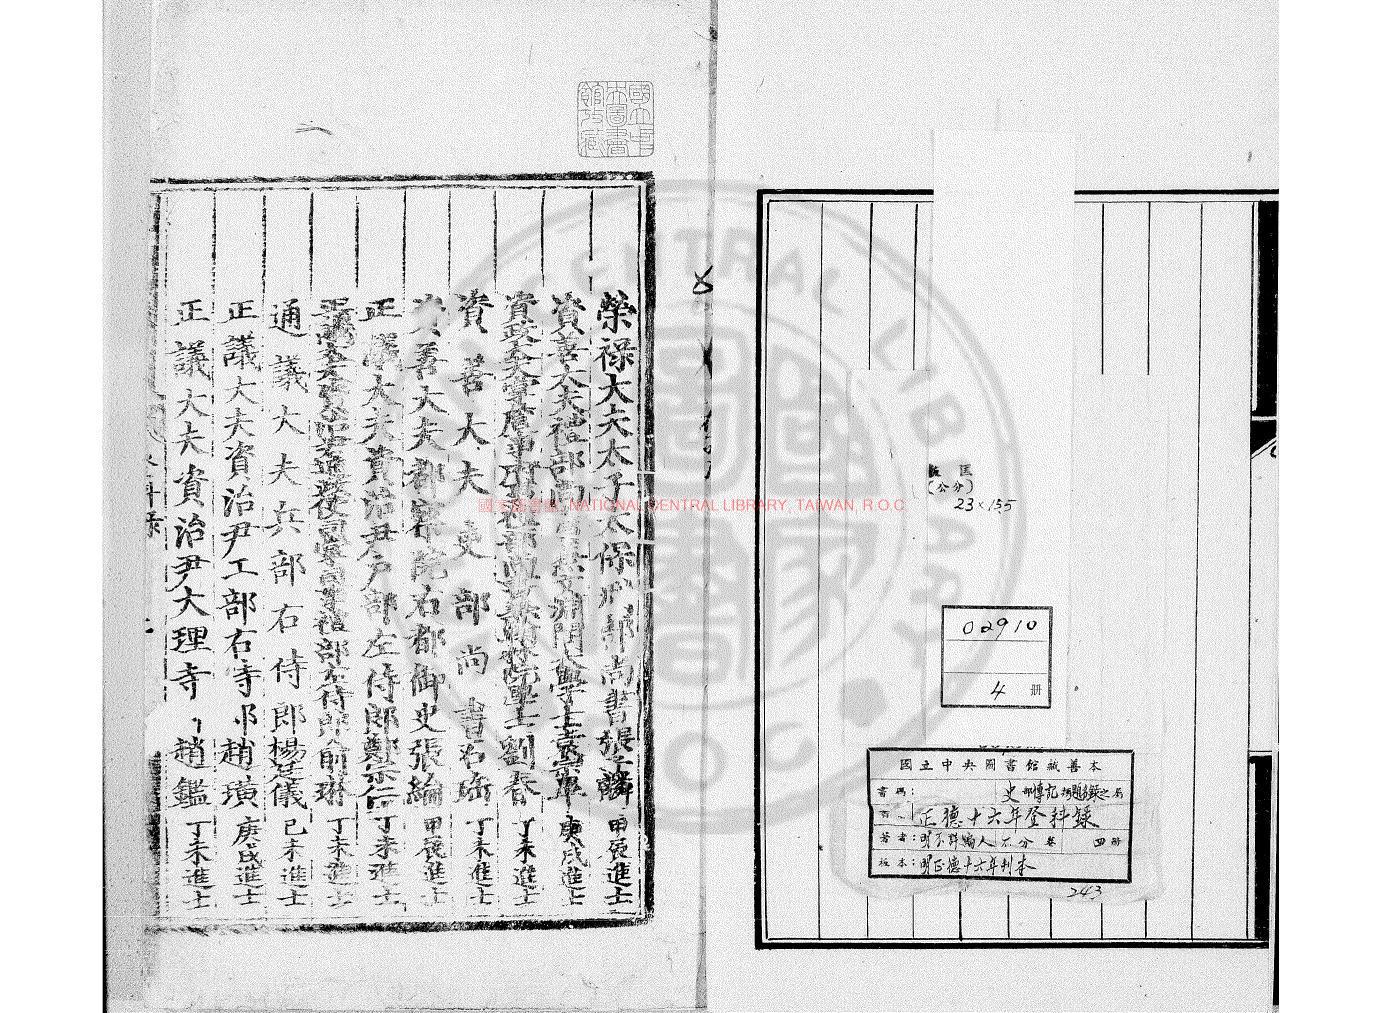 板匡
(公分)
23×15.5
02910
4 册
國立中央圖書館藏善本
書碼：史部傳記類總錄之屬
正德十六年登科錄
著者：明不詳編人 不分卷 四册
板本：明正德十六年刊本
243
國立中央圖書館收藏
榮祿大夫太子太保 部尚書張子麟 甲辰進士
資善大夫禮部尚書 文淵閣大學士袁宗皋 庚戌進士
資政大夫掌詹事府 禮部尚書 翰林院學士劉春 丁未進士
資善大夫吏部尚書石珤 丁未進士
資善大夫都察院右都御史張綸 甲辰進士
正議大夫資治尹戶部左侍郎鄭宗仁 丁未進士
正議大夫資治尹 禮部左侍郎俞琳 丁未進士
通議大夫兵部右侍郎楊廷儀 己未進士
正議大夫資治尹工部右侍郎趙璜 庚戌進士
正議大夫資治尹大理寺 趙鑑 丁未進士
NATIONAL CENTRAL LIBRARY, TAIWAN, R.O.C